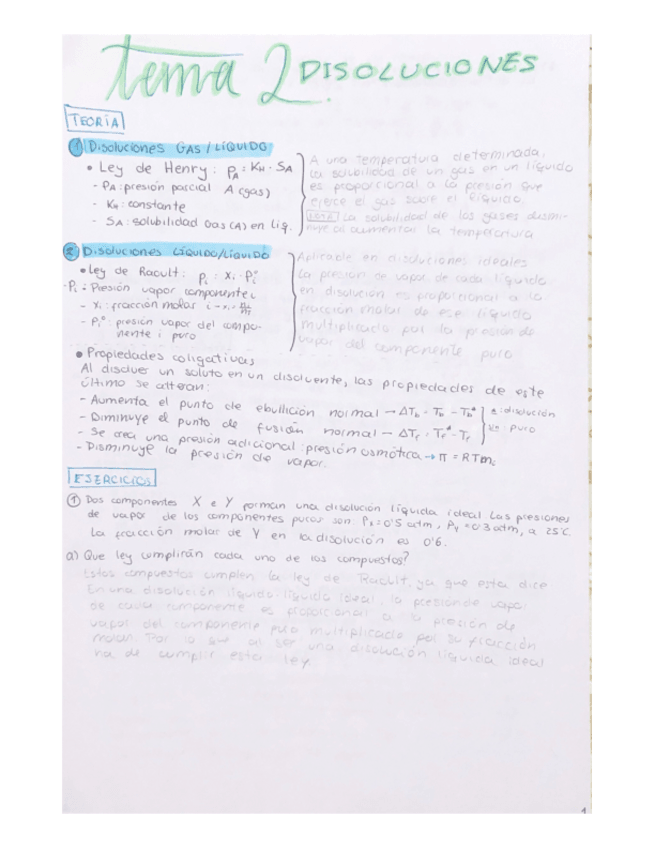 tema 2 DISOLUCIONES
TEORÍA
① Disoluciones GAS/LÍQUIDO
• Ley de Henry: PA = KH · SA
- PA: presión parcial A (gas)
- KH: constante
- SA: solubilidad Gas (A) en líq.
A una temperatura determinada,
la solubilidad de un gas en un líquido
es proporcional a la presión que
ejerce el gas sobre el líquido.
NOTA La solubilidad de los gases dismi-
nuye al aumentar la temperatura
② Disoluciones Líquido/Líquido
• Ley de Raoult: Pi = xi · Pi°
- Pi: Presión vapor componente i
- xi: fracción molar i → xi =
- Pi°: presión vapor del compo-
nente i puro
Aplicable en disoluciones ideales
La presion de vapor de cada líquido
en disolución es proporcional a la
fracción molar de ese líquido
multiplicado por la presión de
vapor del componente puro
• Propiedades coligativas
Al disolver un soluto en un disolvente, las propiedades de este
último se alteran:
- Aumenta el punto de ebullición normal → ΔTb = Tb - Tb*
- Diminuye el punto de fusión normal → ΔTf = Tf* - Tf
: disolución
: puro
- Se crea una presión adicional: presión osmótica → π = RTm
- Disminuye la presión de vapor.
EJERCICIOS
① Dos componentes X e Y forman una disolución líquida ideal. Las presiones
de vapor de los componentes puros son: Px = 0'5 atm, Py = 0'3 atm, a 25°C.
La fracción molar de Y en la disolución es 0'6.
a) Que ley cumplirán cada uno de los compuestos?
Estos compuestos cumplen la ley de Raoult, ya que esta dice
En una disolución líquido-líquido ideal, la presión de vapor
de cada componente es proporcional a la presión de
vapor del componente puro multiplicado por su fracción
molar. Por lo que al ser una disolución líquida ideal
ha de cumplir esta ley.
1